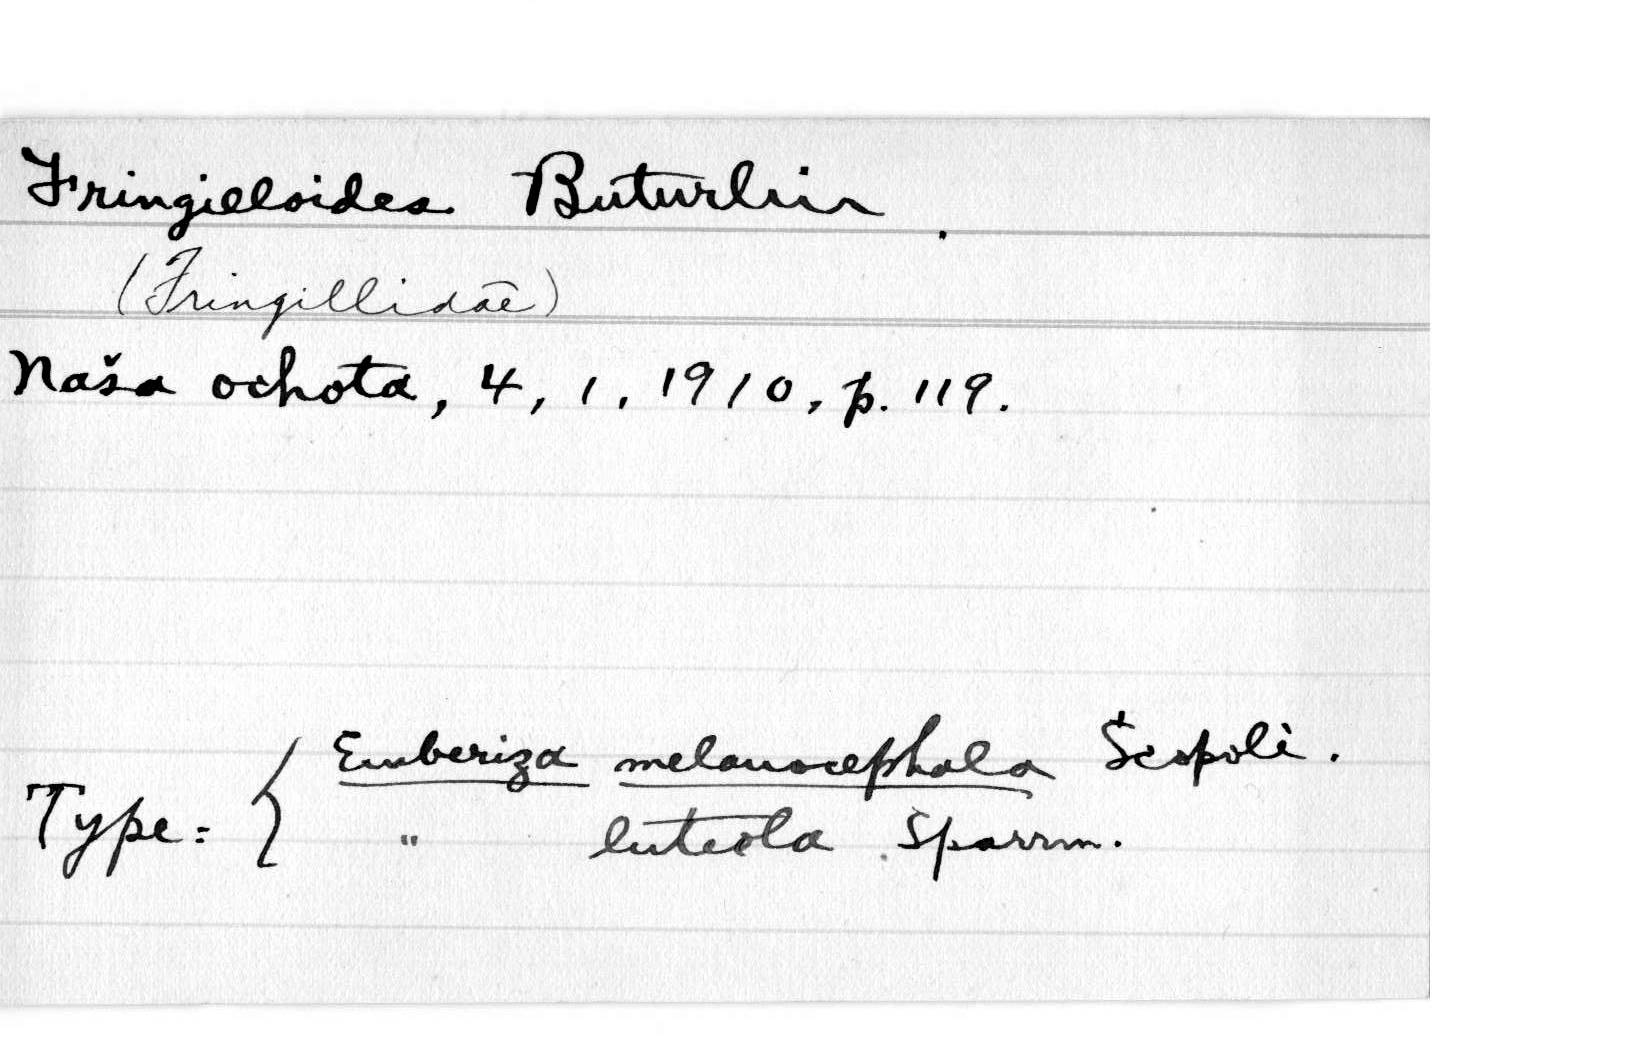 Fringilloides Buturlin.
(Fringillidae)
Naša ochota, 4, 1, 1910, p. 119.
Emberiza melanocephala Scopoli.
Type = {
" luteola Sparrm.